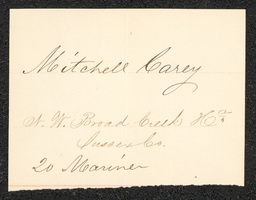 Mitchell Carey
N. W. Broad Creek Hd.
Sussex Co.
20 Mariner